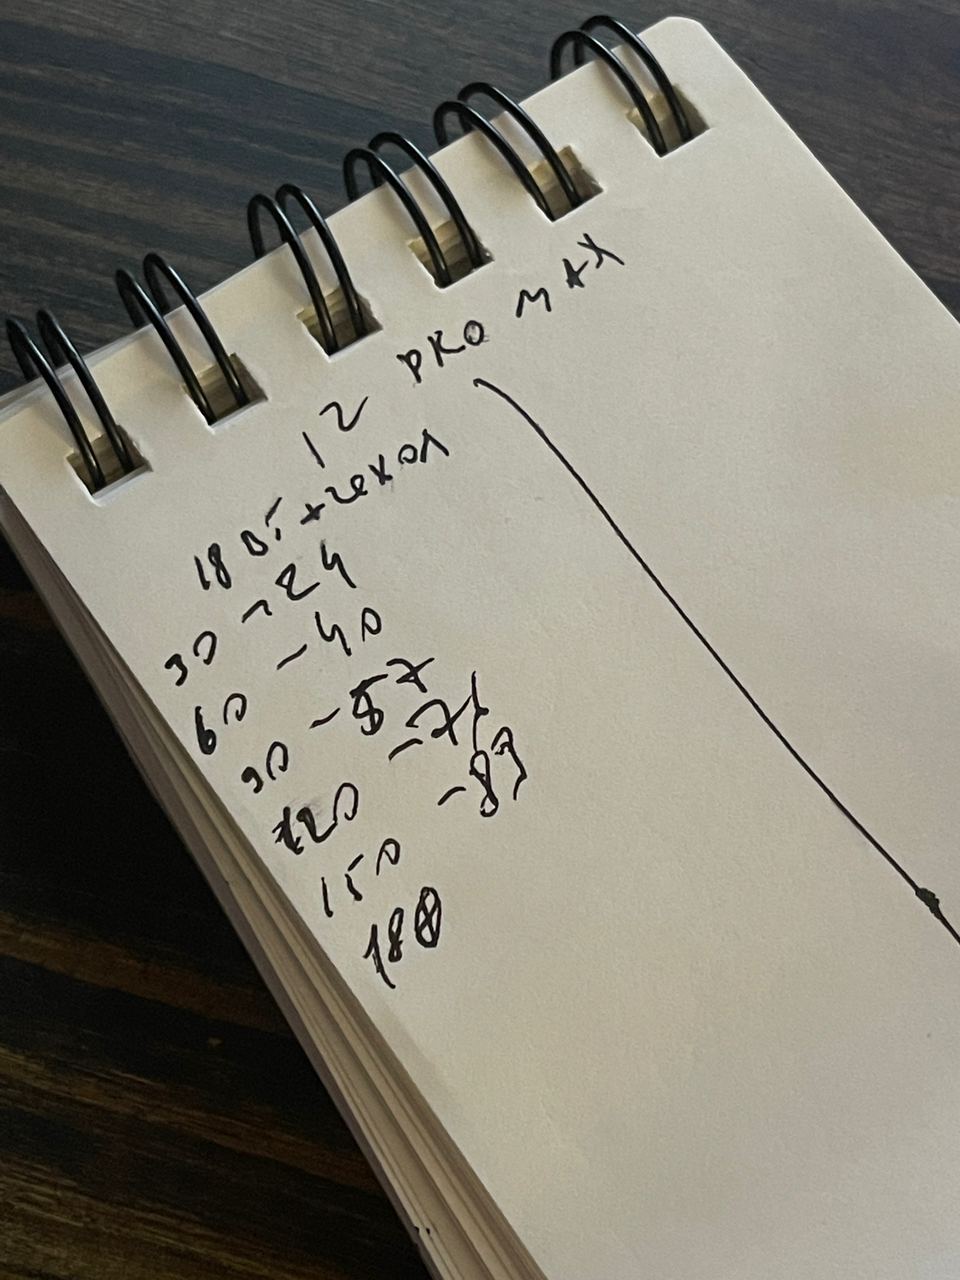 12 PRO MAX
18 Вт + чехол
30 - 24
60 - 40
90 - 57
120 - 71
150 - 83
180